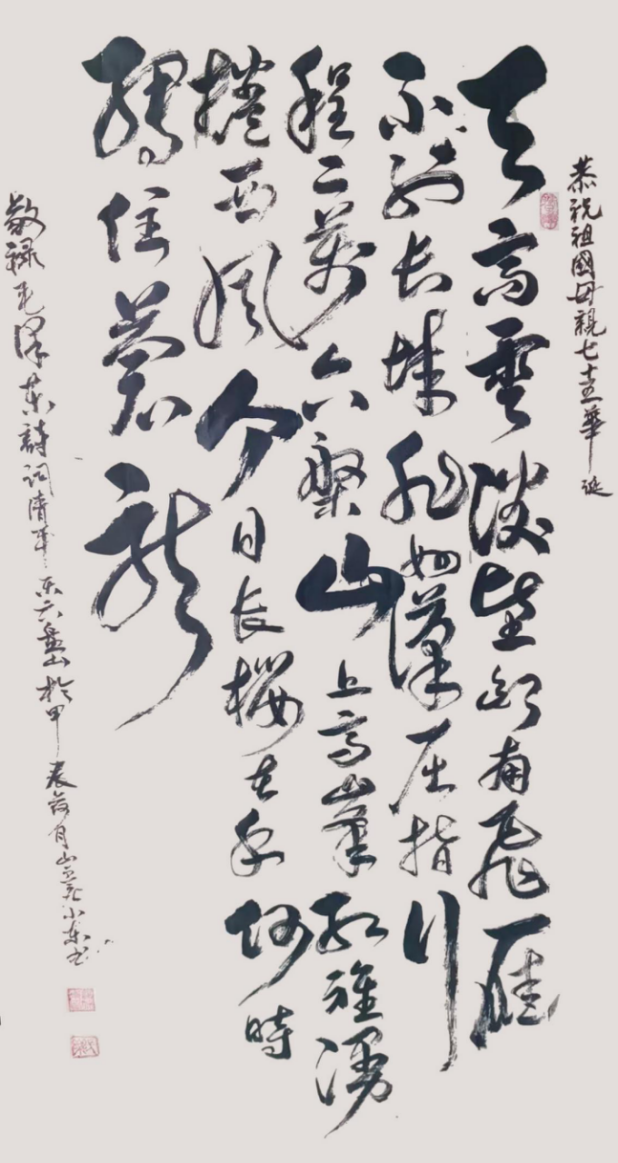 恭祝祖國母親七十五華誕
天高雲淡望斷南飛雁
不到长城非好漢屈指行
程二萬六盤山上高峯紅旗漫
捲西風今日长纓在手何時
縛住蒼龍
敬録毛澤東詩詞清平乐六盘山於甲辰荷月小东书